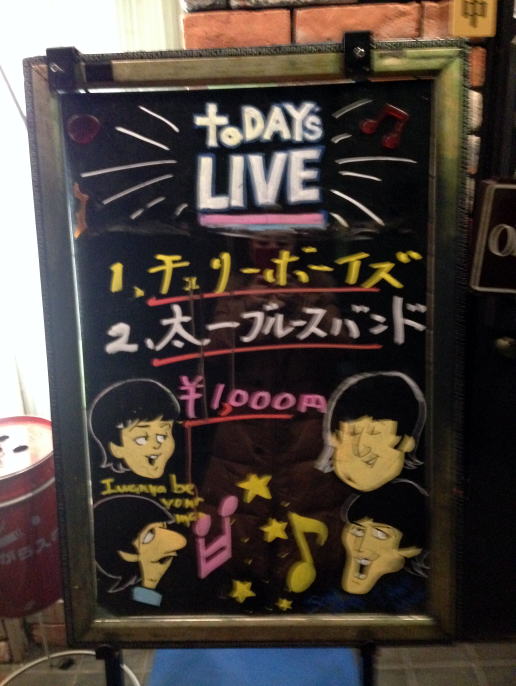 toDAY's
LIVE
1、チェリーボーイズ
2、太一ブルースバンド
¥1,000円
I wanna be
your
man